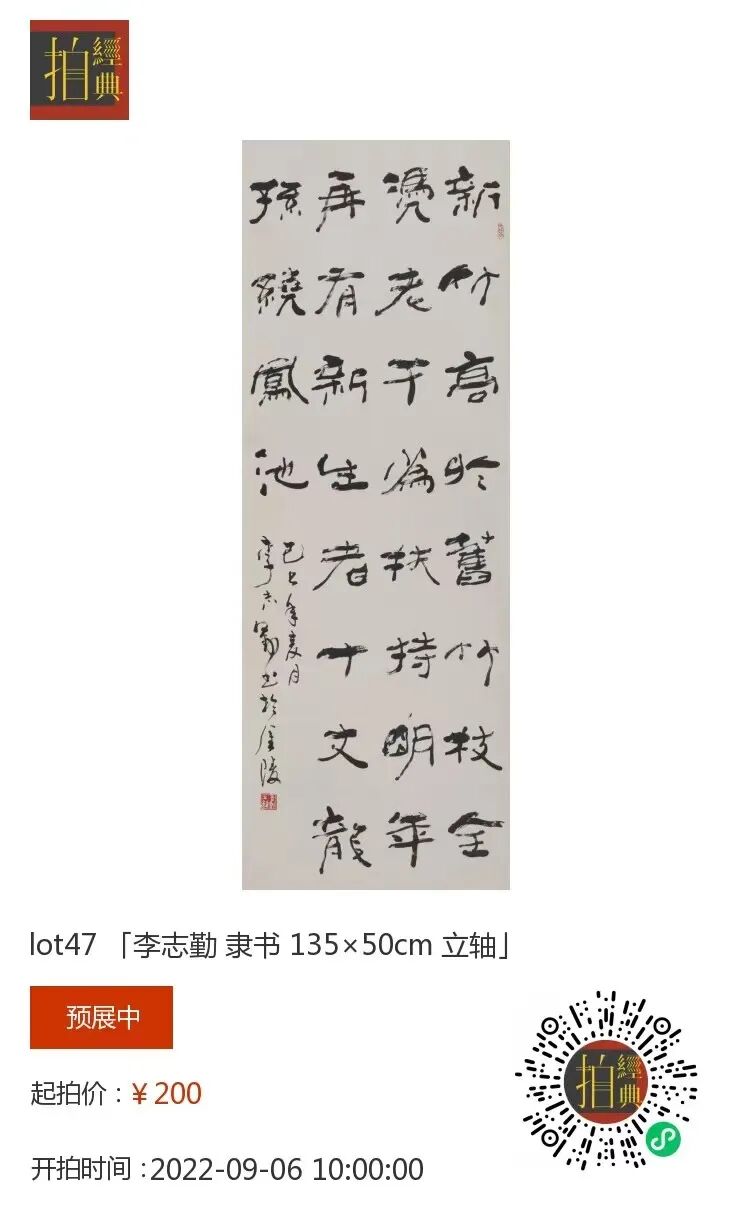 拍
經典
新竹高於舊竹枝全
凴老干為扶持明年
再有新生者十丈龍
孫繞鳳池
己年夏月
李志勤书於金陵
lot47 「李志勤 隶书 135×50cm 立轴」
预展中
起拍价：¥ 200
开拍时间：2022-09-06 10:00:00
拍
經典